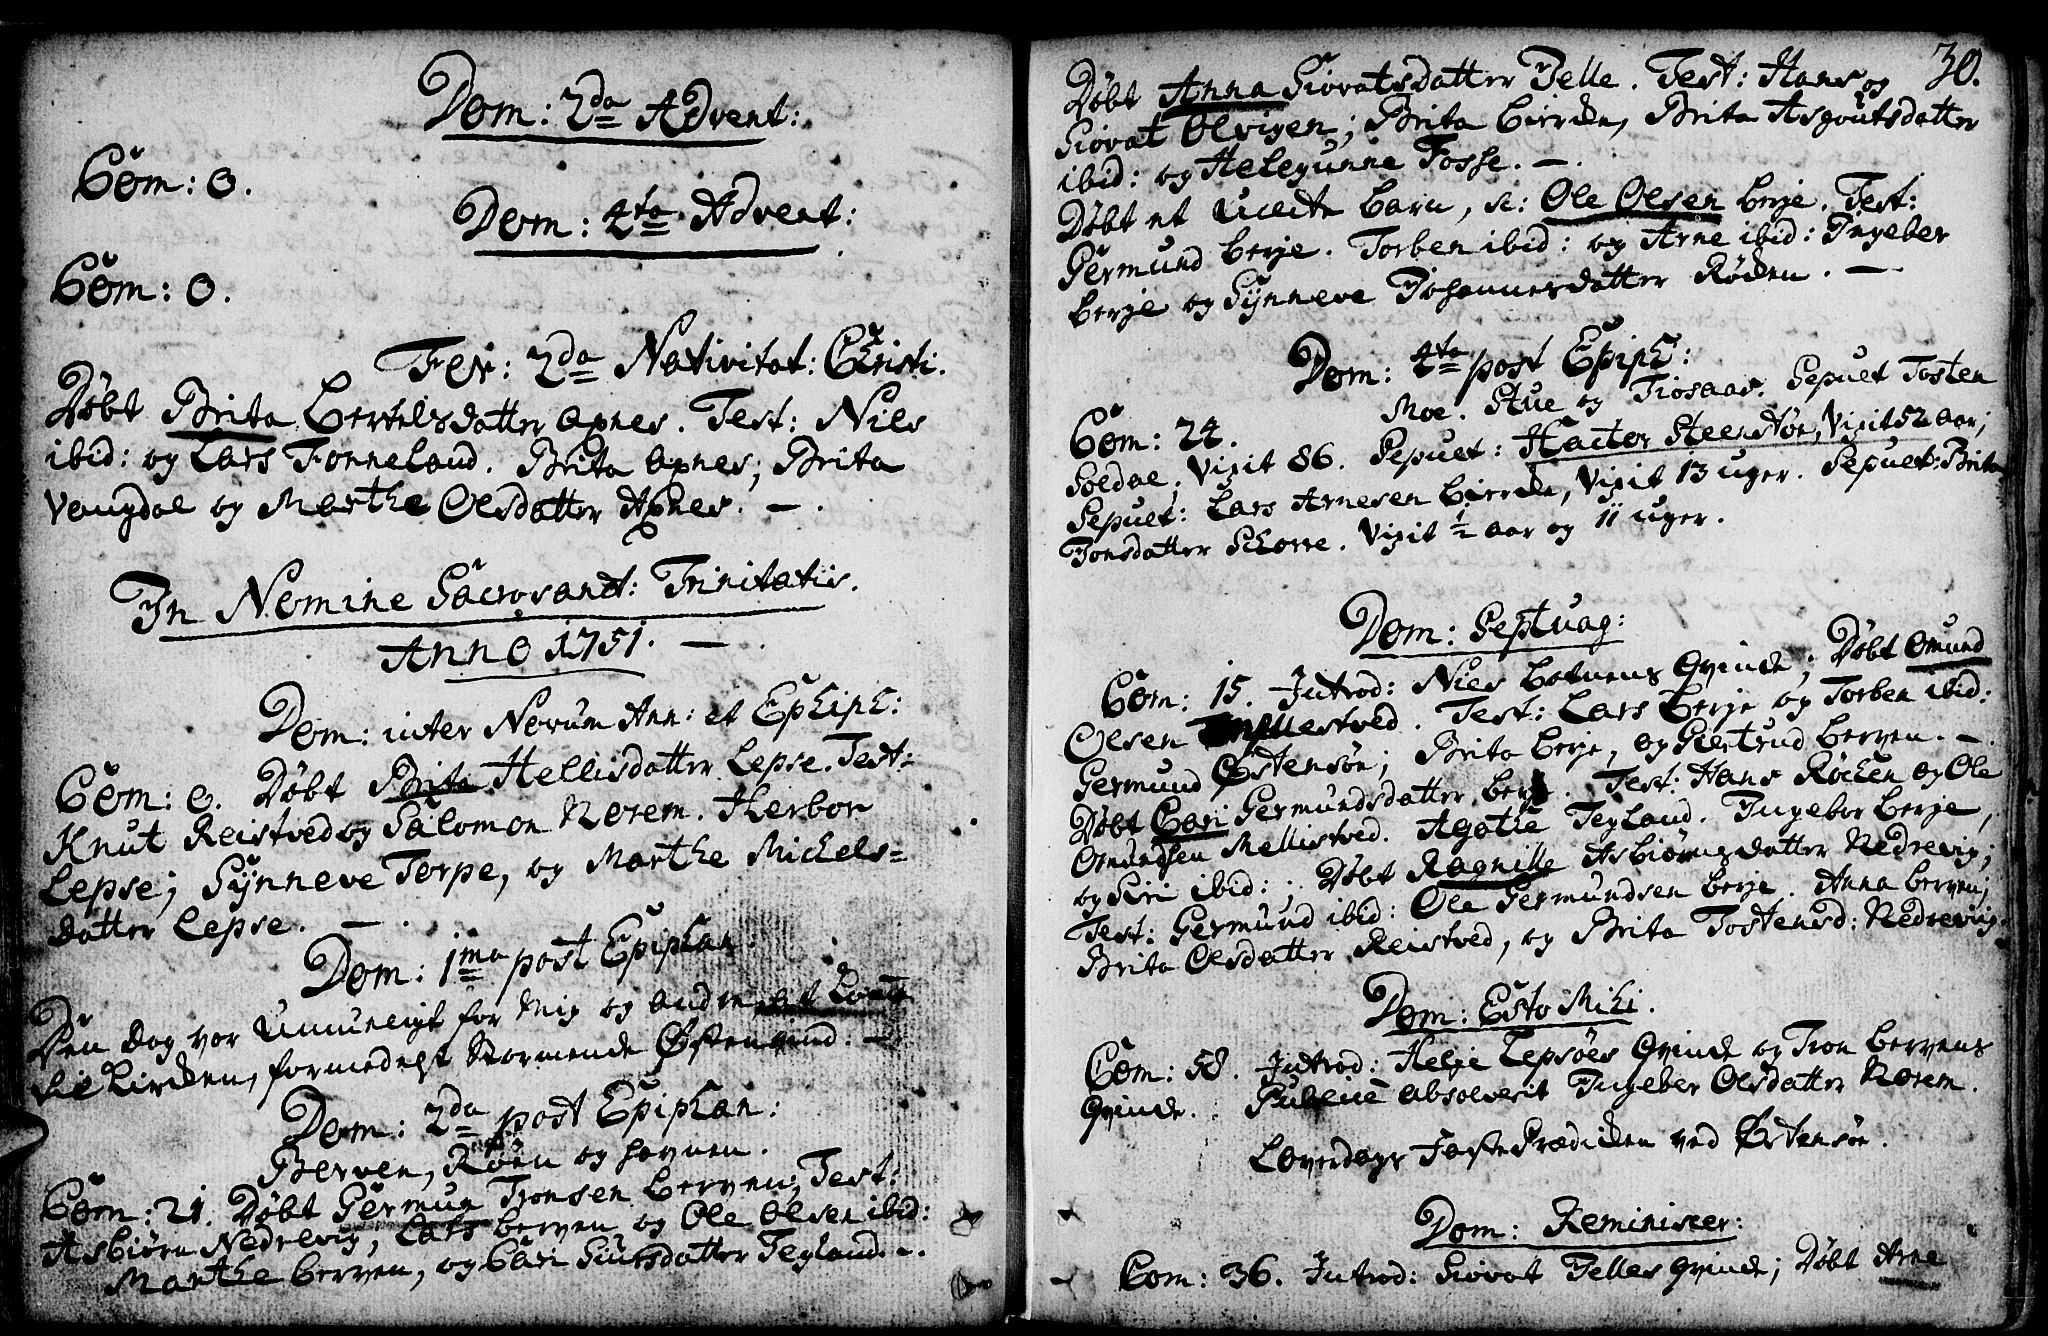 Dom: 2da Advent:
Com: 0.
Dom: 4ta Advent:
Com: 0.
Fer: 2da Nativitat: Christi.
Døbt Brita Bertelsdatter Axnes. Test: Niels
ibid: og Lars Fonneland. Brita Axnes; Brita
Vangdal og Marthe Olsdatter Axnes. —.
In Nomine Sacrosanct: Trinitatiis.
Anno 1751. —.
Dom: inter Novum Ann: et Ephiph:
Com: 0. Døbt Brita Hellisdatter Lepse. Test:
Knut Reistved og Salomon Norem. Herbor
Lepse; Synneve Torpe, og Marthe Michels=
datter Lepse. —.
Dom: 1ma post Epiphan:
Den dag var Umueligt for Mig og andre at komme
til Kirken, formedelst stormende Østenvind. —
Dom: 2da post Epiphan:
Berven, Røen og Havnen.
Com: 21. Døbt Germun Tronsen Berven; Test:
Asbiørn Nedrevig, Lars Berven og Ole Olsen ibid:
Marthe Berven, og Cari Siursdatter Tegland. —.
30.
Døbt Anna Siovatsdatter Telle. Test: Hans og
Siovat Olvigen; Brita Birkeland, Brita Asgoutsdatter
ibid: og Helegunne Fosse. —.
Døbt et Uægte barn, n: Ole Olsen Berje. Test:
Germund Berje. Torben ibid: og Arne ibid: Ingebor
Berje og Synneve Johannesdatter Røden. —
Dom: 4ta post Epiph:
Moe. Stue og Tiosaas. Sepult Tosten
Com: 24.
Soldal, Vixit 86. Sepult: Hactor Steenstøe, Vixit 52 aar;
Sepult: Lars Arnesen, Vixit 13 uger. Sepult: Brita
Jonsdatter Skorre. Vixit ½ aar og 11 uger.
Dom: Septuag:
Com: 15. Introd: Niels Botnens Qvinde; Døbt Omund
Olsen Mellestved. Test: Lars Berje og Torben ibid:
Germund Østensøe; Brita Berje, og Giertrud Berven. —.
Døbt Cari Germundsdatter Berje. Test: Hans Røchen og Ole
Omundsen Mellistved. Agathe Tegland. Ingebor Berje,
og Siri ibid: Døbt Ragnille Asbiørnsdatter Nedrevig;
Test: Germund ibid: Ole Germundsen Berje. Anna Berven;
Brita Olsdatter Reistved, og Brita Tostensd: Nedrevig.
Dom: Esto Mihi.
Com: 58. Introd: Helje Tepsøes Qvinde og Tron Bervens
Qvinde. Publicè absolverit Ingebor Olsdatter Norem.
Løverdags Faste Prædicken ved Østensøe.
Dom: Reminiscer:
Com: 36. Introd: Siovat Telles Qvinde; Døbt Arne